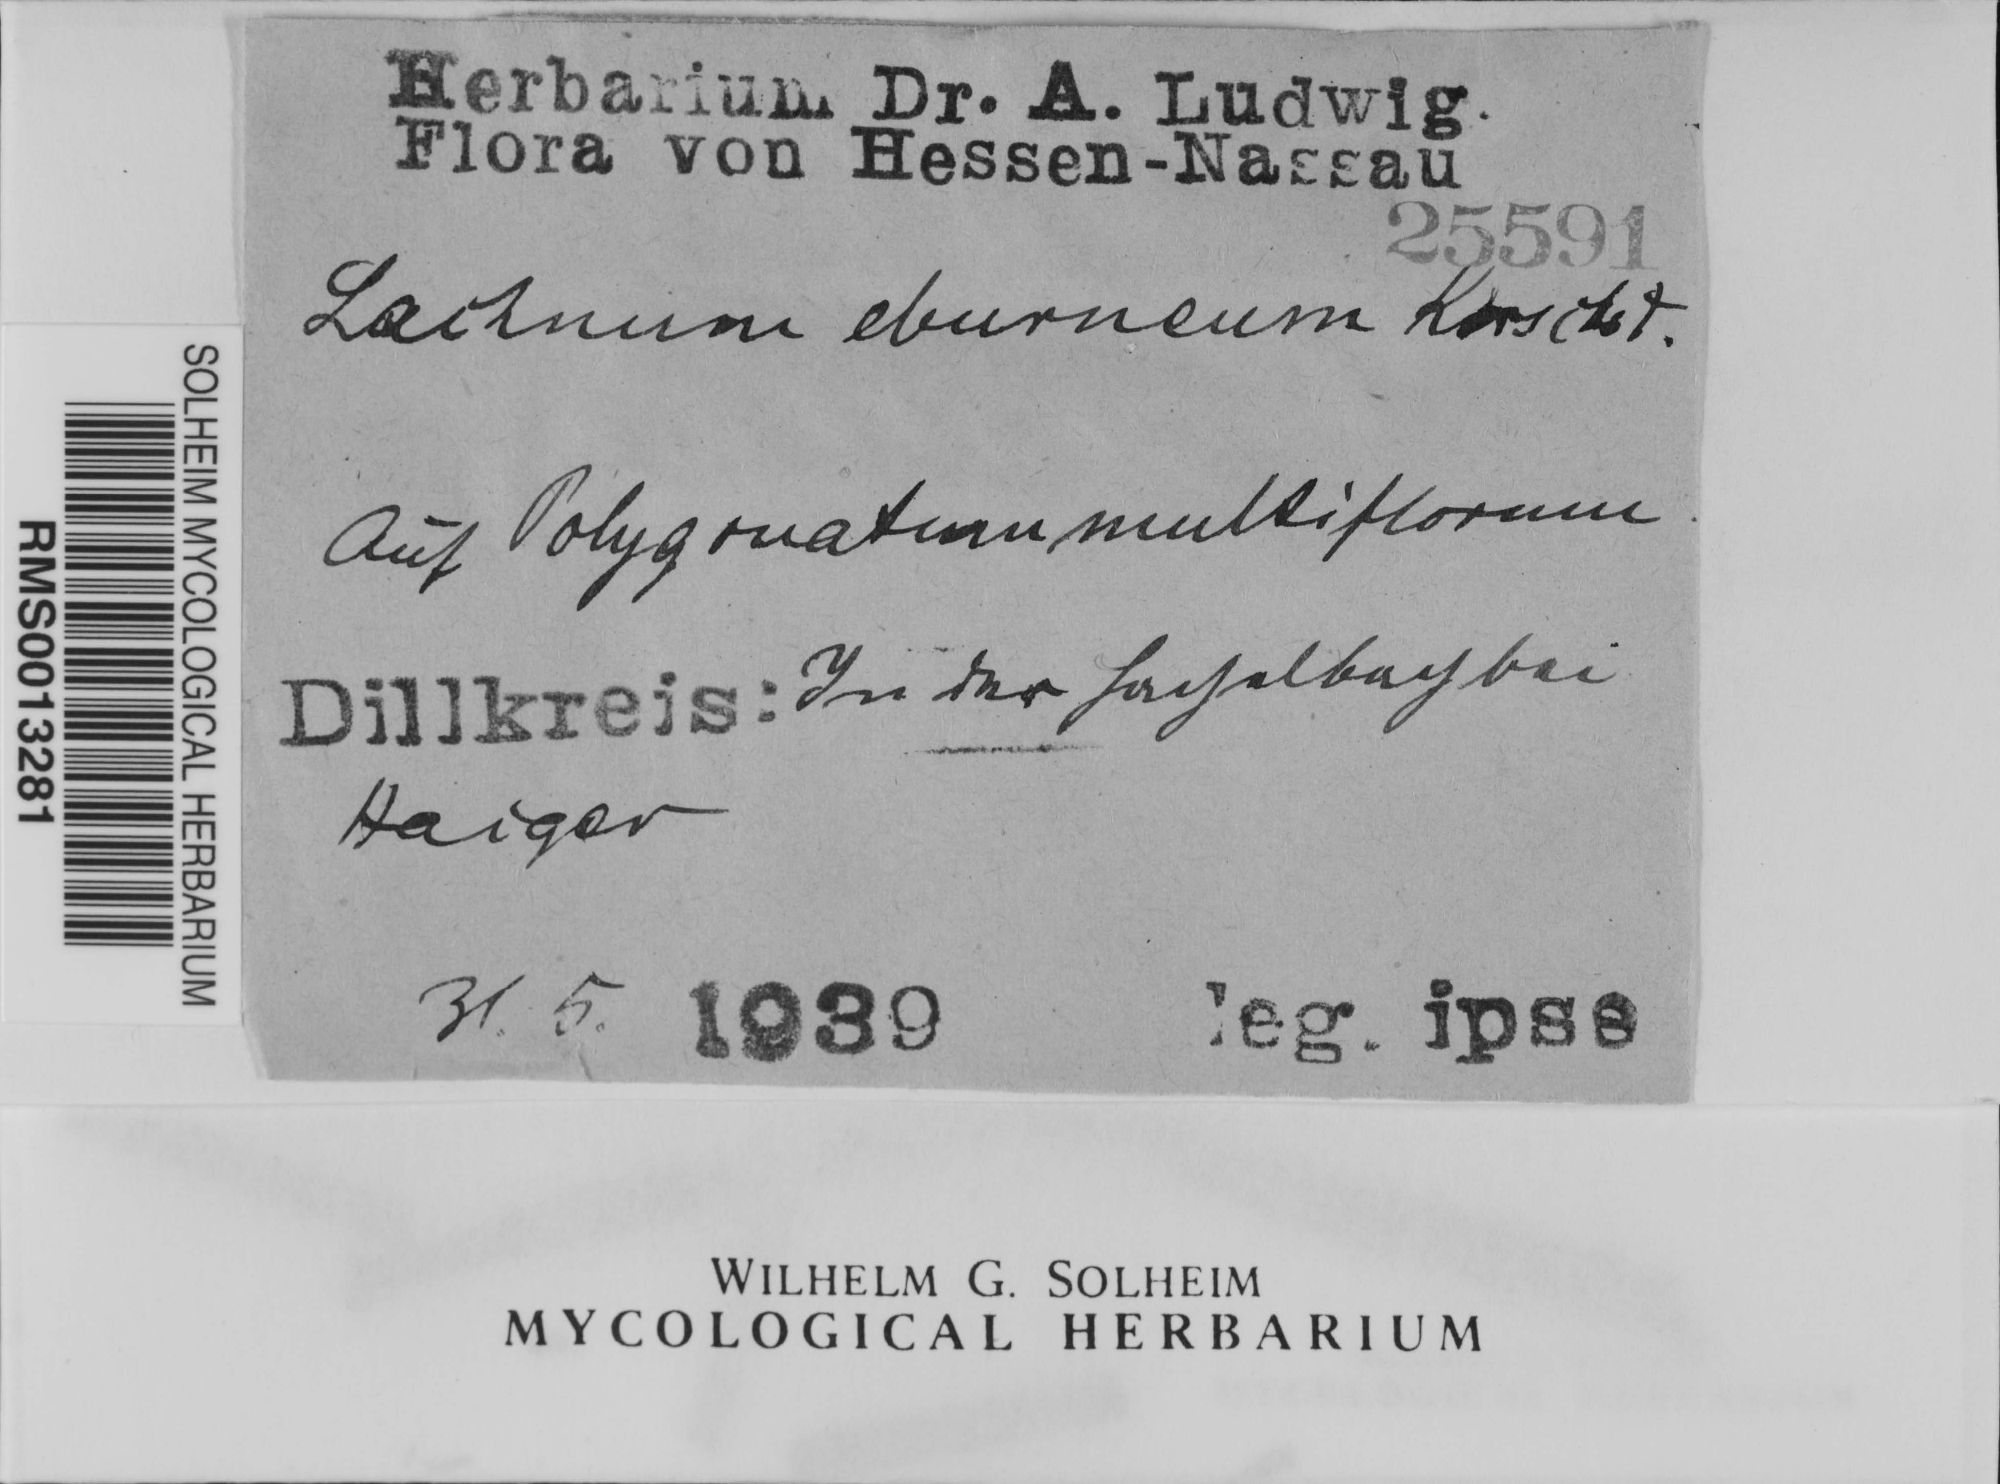 Herbarium Dr. A. Ludwig.
Flora von Hessen-Nassau
25591
Lachnum eburneum Kirschst.
Auf Polygonatum multiflorum
Dillkreis: In der bei
Haiger
31. 5. 1939 leg. ipse
SOLHEIM MYCOLOGICAL HERBARIUM
RMS0013281
WILHELM G. SOLHEIM
MYCOLOGICAL HERBARIUM